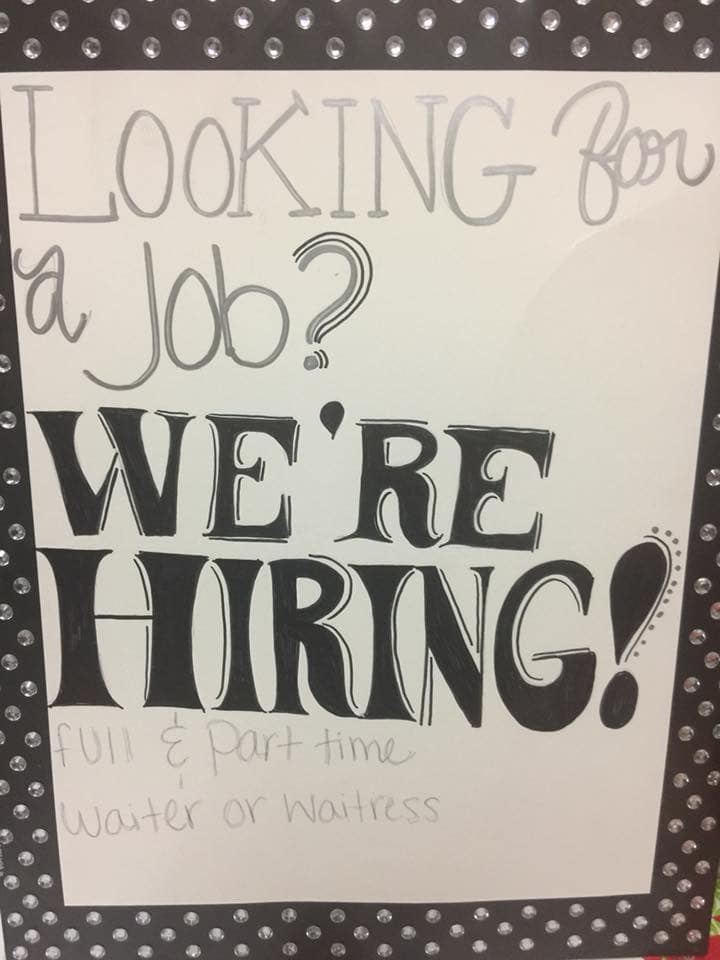 LOOKING for
a Job?
WE'RE
HIRING!
full & part time
waiter or waitress